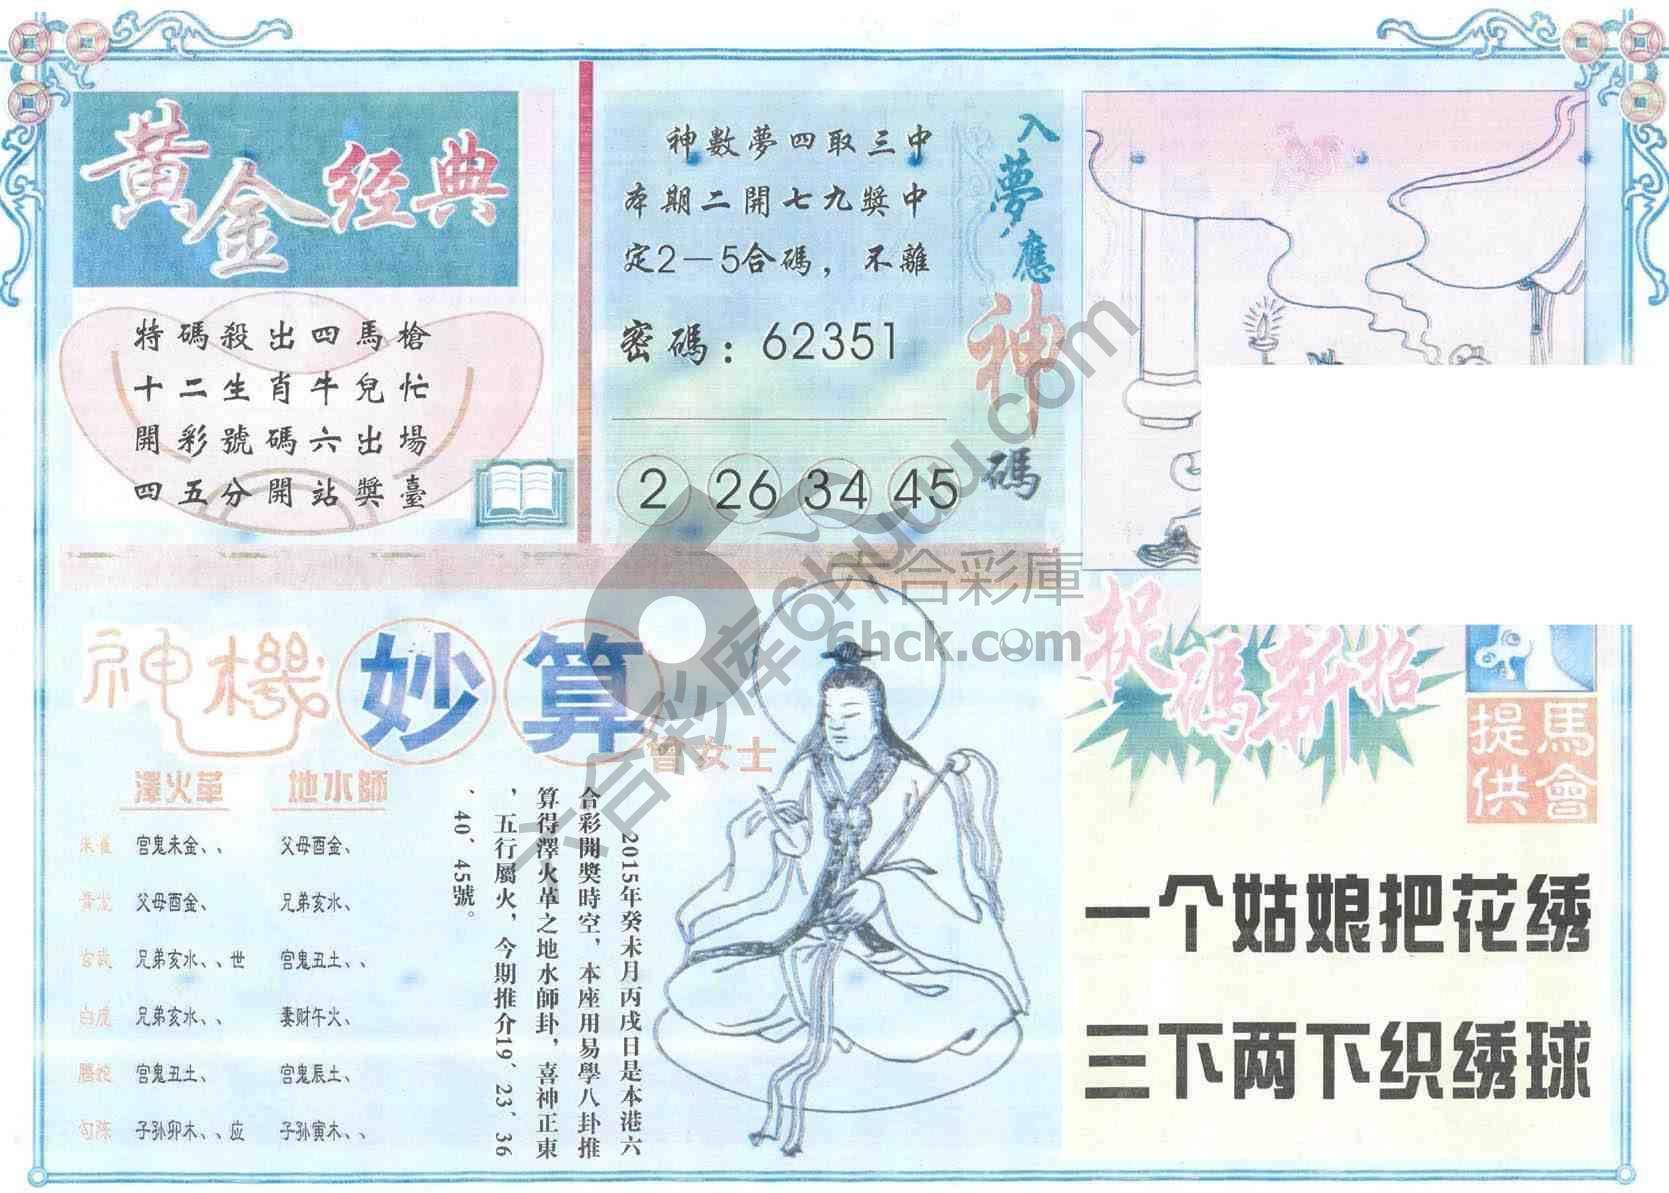 黃金经典
特碼殺出四馬槍
十二生肖牛兒忙
開彩號碼六出場
四五分開站獎臺
入夢應神碼
神數夢四取三中
本期二開七九獎中
定2－5合碼，不離
密碼：62351
2 26 34 45
六合彩庫
6hck.com
六合彩库6huu.com
神機妙算
曾女士
澤火革 地水師
朱雀 宫鬼未金、、 父母酉金、
青龙 父母酉金、 兄弟亥水、
玄武 兄弟亥水、、世 宫鬼丑土、、
白虎 兄弟亥水、、 妻财午火、
螣蛇 宫鬼丑土、 宫鬼辰土、
勾陈 子孙卯木、、应 子孙寅木、、
2015年癸未月丙戌日是本港六
合彩開獎時空，本座用易學八卦推
算得澤火革之地水師卦，喜神正東
，五行屬火，今期推介19、23、36
、40、45號。
捉碼新招
馬會提供
一个姑娘把花绣
三下两下织绣球